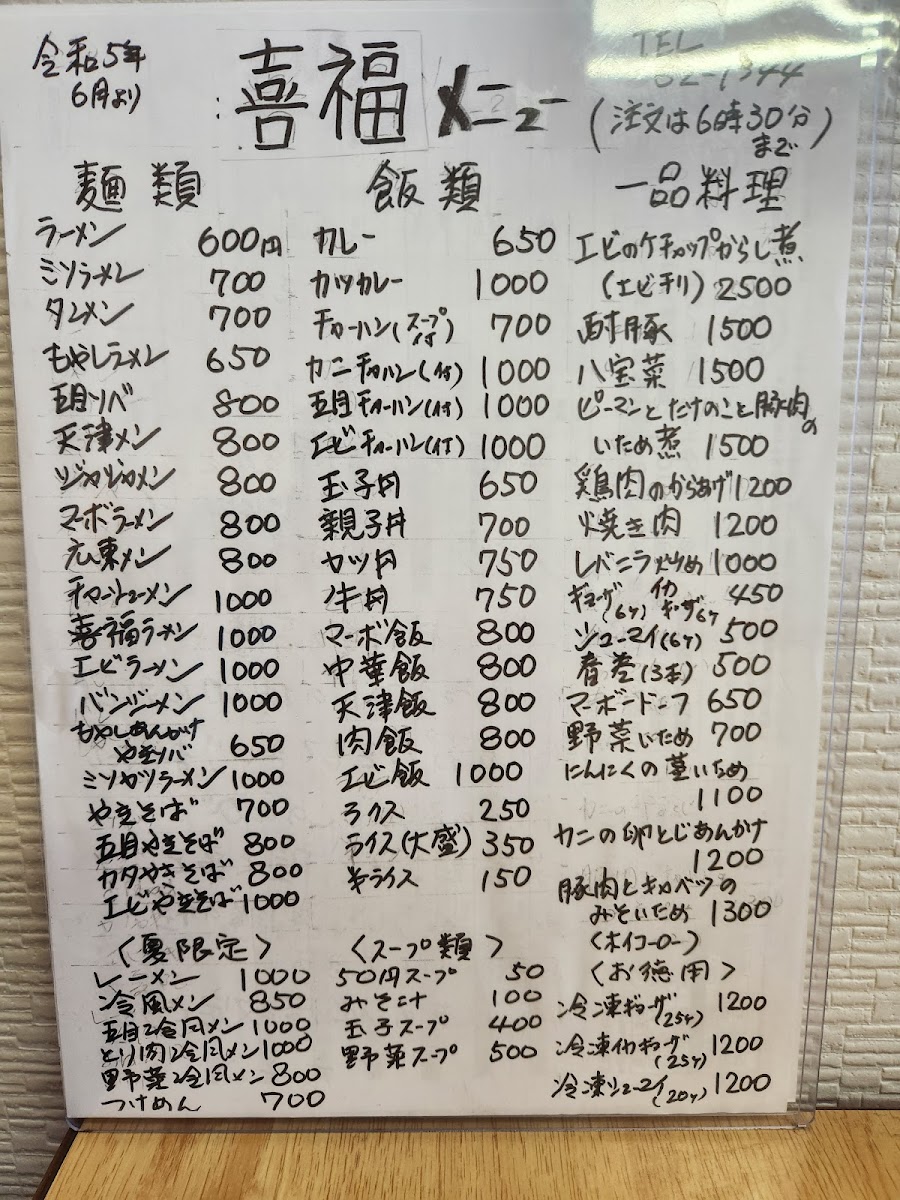 令和5年
6月より
喜福 メニュー
TEL
62-1344
(注文は6時30分
まで)
麺類
ラーメン 600円
ミソラーメン 700
タンメン 700
もやしラーメン 650
五目ソバ 800
天津メン 800
ジャジャメン 800
マーボラーメン 800
広東メン 800
チャーシューメン 1000
喜福ラーメン 1000
エビラーメン 1000
バンジーメン 1000
もやしあんかけ
やきソバ 650
ミソカツラーメン 1000
やきそば 700
五目やきそば 800
カタやきそば 800
エビやきそば 1000
〈夏限定〉
レーメン 1000
冷風メン 850
五目冷風メン 1000
とり肉冷風メン 1000
野菜冷風メン 800
つけめん 700
飯類
カレー 650
カツカレー 1000
チャーハン(スープ付) 700
カニチャハン(付) 1000
五目チャーハン(付) 1000
エビチャーハン(付) 1000
玉子丼 650
親子丼 700
カツ丼 750
牛丼 750
マーボ飯 800
中華飯 800
天津飯 800
肉飯 800
エビ飯 1000
ライス 250
ライス(大盛) 350
半ライス 150
〈スープ類〉
50円スープ 50
みそ汁 100
玉子スープ 400
野菜スープ 500
一品料理
エビのケチャップからし煮
(エビチリ) 2500
酢豚 1500
八宝菜 1500
ピーマンとたけのこと豚肉の
いため煮 1500
鶏肉のからあげ 1200
焼き肉 1200
レバニラ炒め 1000
ギョーザ(6ケ) イカギョーザ6ケ 450
シューマイ(6ケ) 500
春巻(3本) 500
マーボードーフ 650
野菜いため 700
にんにくの茎いため
1100
カニの卵とじあんかけ
1200
豚肉とキャベツの
みそいため 1300
(ホイコーロー)
〈お徳用〉
冷凍ギョーザ(25ケ) 1200
冷凍イカギョーザ(25ケ) 1200
冷凍シューマイ(20ケ) 1200